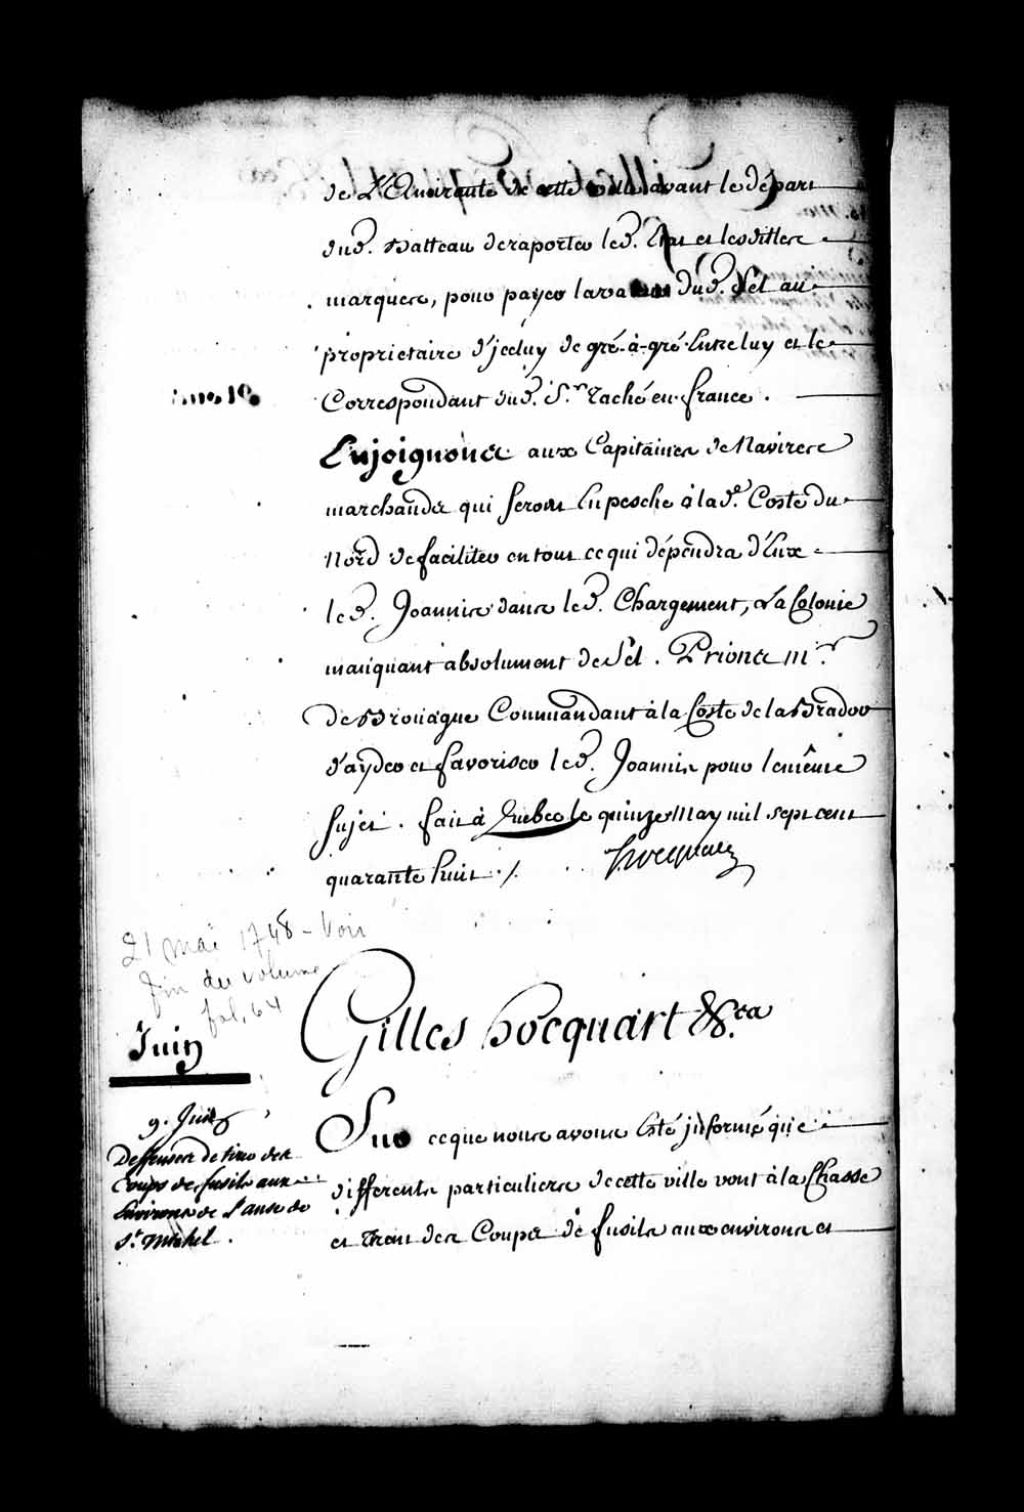 de L'Amirauté de cette ville avant le départ
dud. Batteau de raporter led. Etat et lesdittes
marques, pour payer la valeur dud. Sel au
proprietaire d'jceluy de gré-à-gré Entre luy et le
Correspondant dud. S.r Taché en france.
Enjoignons aux Capitaines de Navires
marchands qui seront En pesche à lad.e Coste du
Nord de faciliter en tout ce qui dépendra d'Eux
led. Joannis dans led. Chargement, La Colonie
manquant absolument de Sel. Prions M.r
De Brouague Commandant à la Coste de la Brador
d'ayder et favoriser led. Joannis pour le même
Sujet. fait à Quebec le quinze May mil sept cent
quarante huit ./. Hocquart
21 mai 1748 - Voir
fin du volume
fol. 64
Juin
Gilles hocquart &.ca
9. Juin
Deffenses de tirer des
Coups de fusils aux
Environs de l'anse de
S.t Michel.
Sur ce que nous avons Esté jnformé que
differents particuliers de cette ville vont à la Chasse
et tirent des Coups de fusils aux environs et